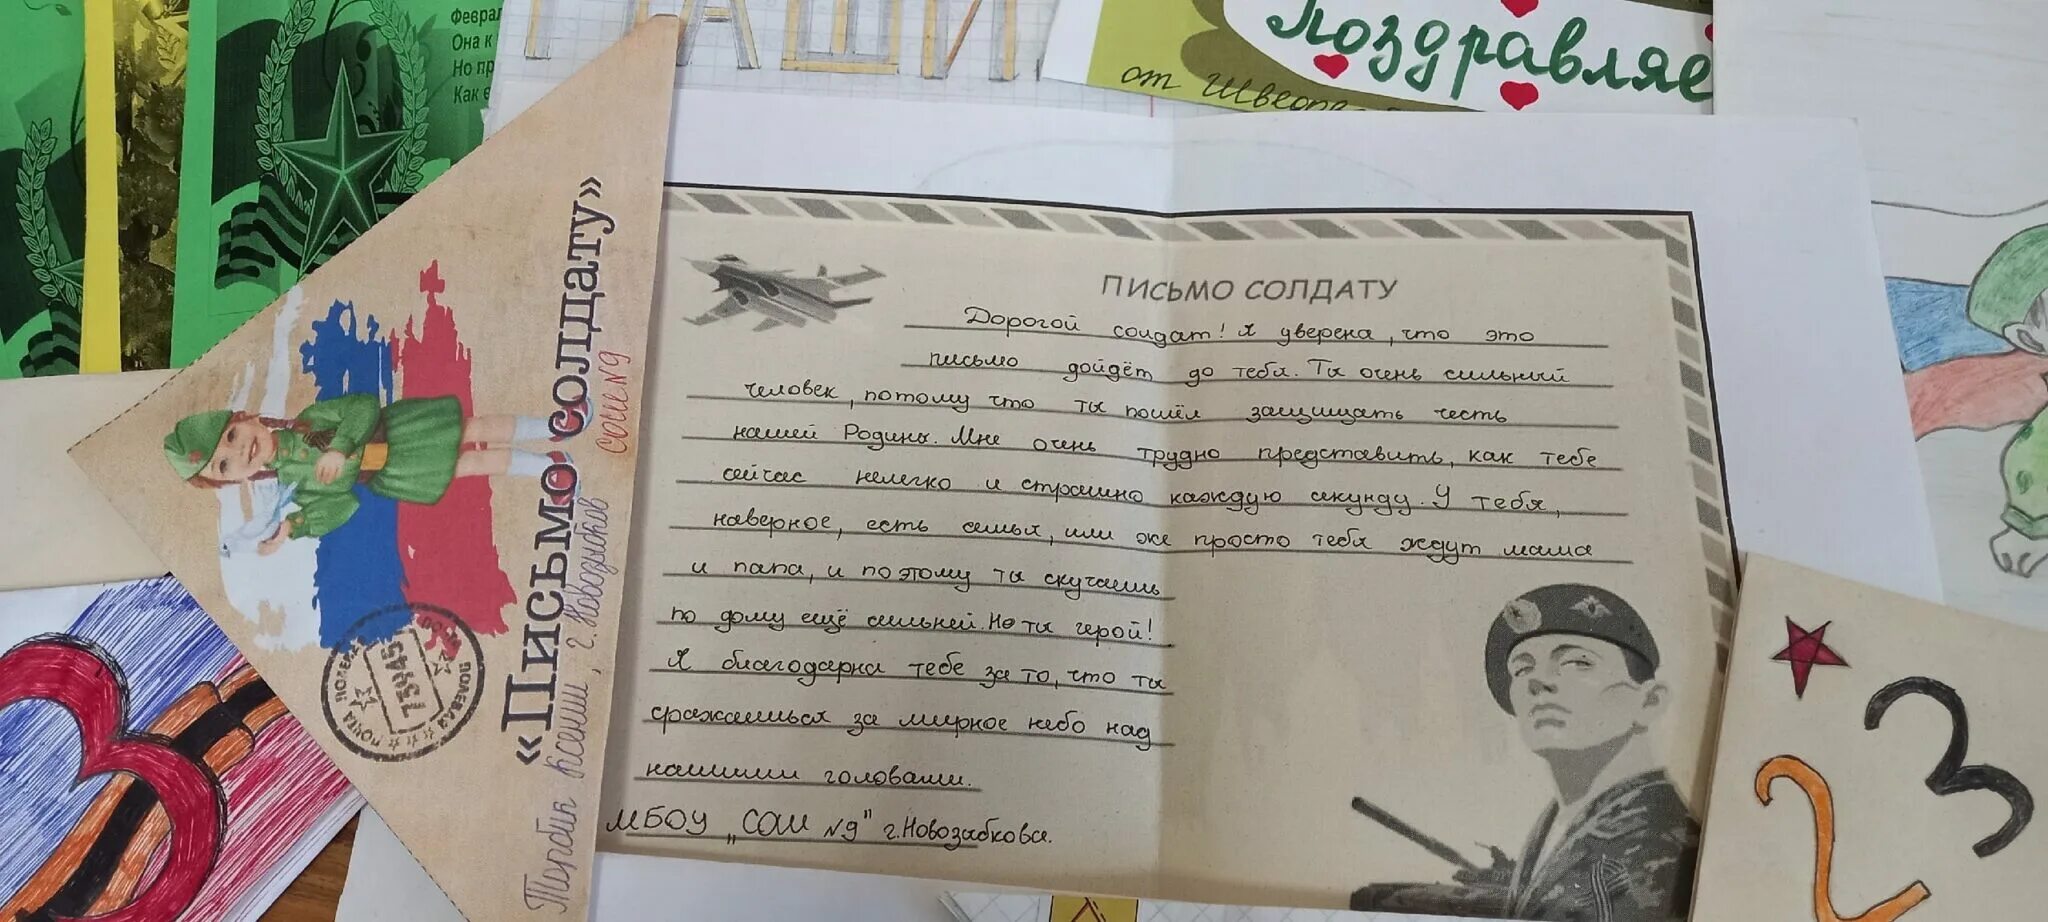 Феврал
Она к
Но пр
Как в
НАШИ
Поздравляе
от
«Письмо солдату»
СОШ №9
г. Новозыбков
Ксении,
ПОЛЕВАЯ ПОЧТА
753445
ПИСЬМО СОЛДАТУ
Дорогой солдат! Я уверена, что это
письмо дойдёт до тебя. Ты очень сильный
человек, потому что ты пошёл защищать честь
нашей Родины. Мне очень трудно представить, как тебе
сейчас нелегко и страшно каждую секунду. У тебя,
наверное, есть семья, или же просто тебя ждут мама
и папа, и поэтому ты скучаешь
по дому ещё сильней. Но ты герой!
Я благодарна тебе за то, что ты
сражаешься за мирное небо над
нашими головами.
МБОУ „СОШ №9" г. Новозыбкова.
23